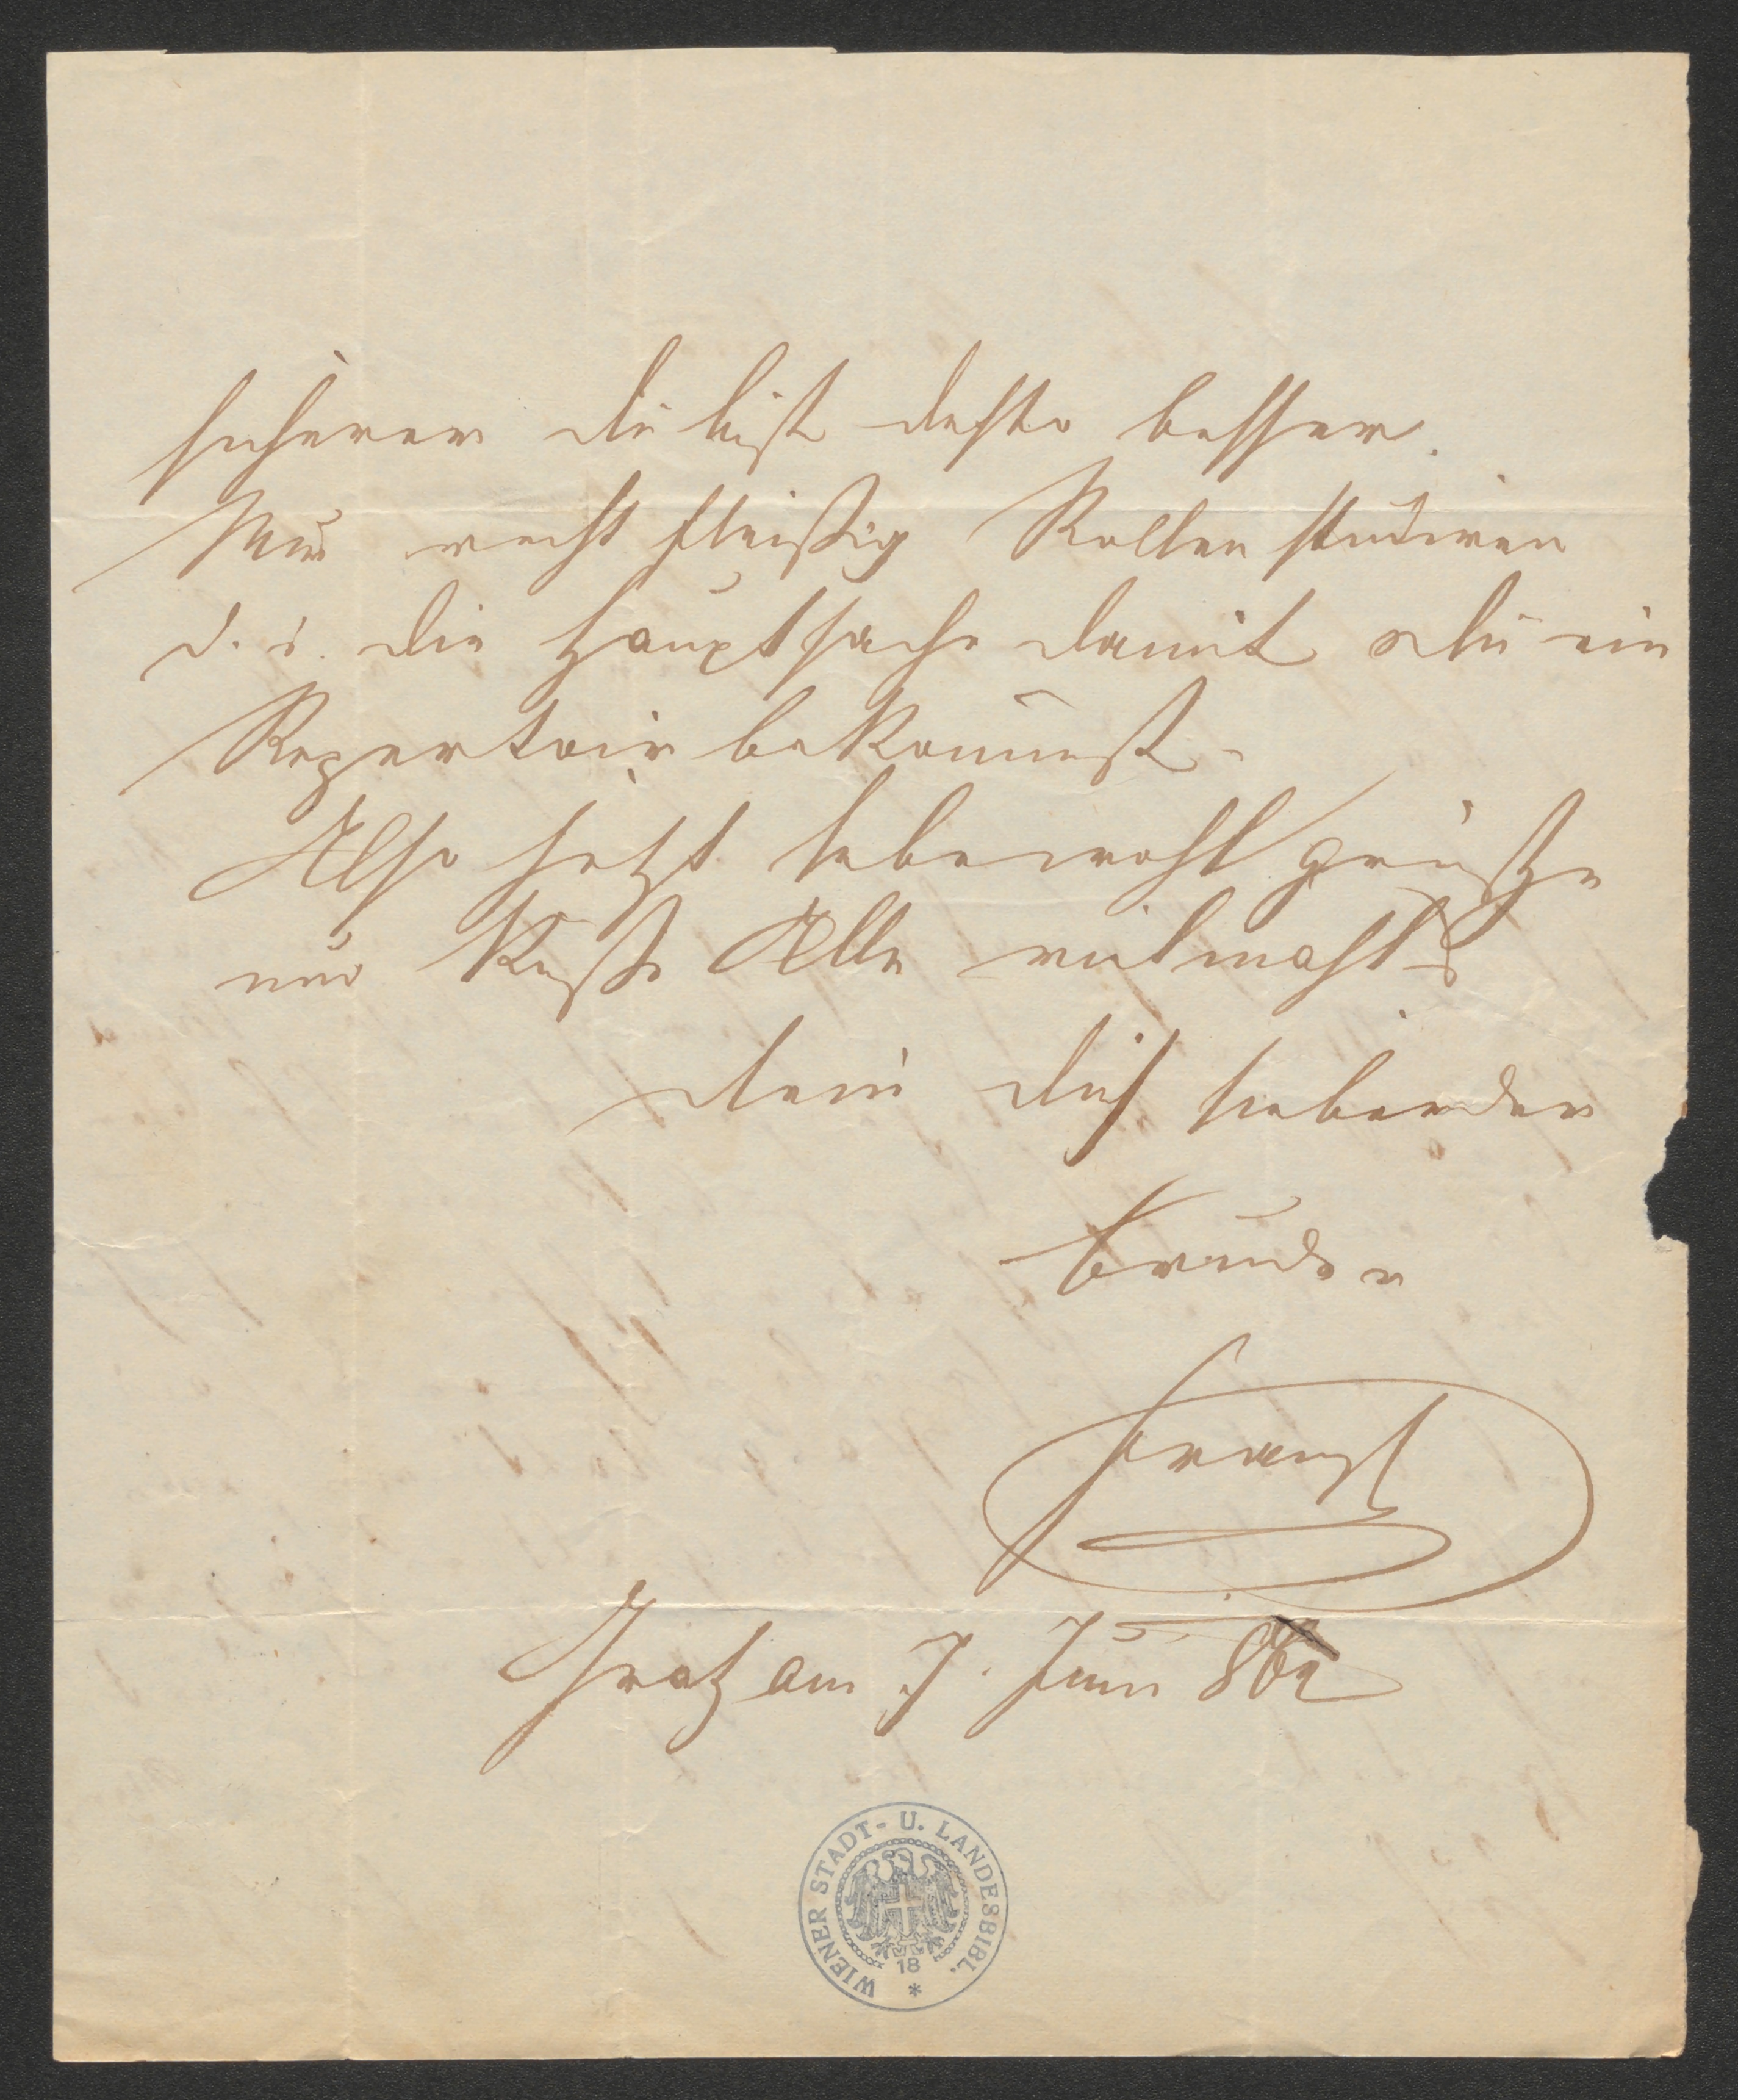 sicherer du bist desto besser.
Nur recht fleißig Rollen studiren
d. i. die Hauptsache damit du ein
Repertoir bekommst.
Also jetzt lebewohl grüße
und küsse Alle vielmahls
dein dich liebender
Bruder
Franz
Gratz am 7. Juni 862
WIENER STADT- U. LANDESBIBL.
18
*